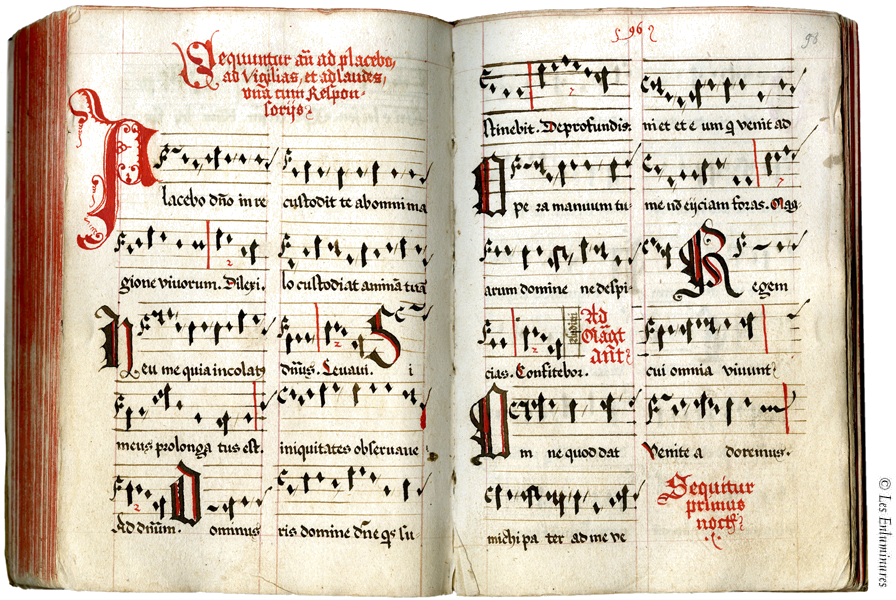 Sequuntur an̄ ad placebo,
ad Vigilias, et ad laudes,
vna cum Respon-
sorijs
Placebo dn̄o in re
gione viuorum. Dilexi.
Heu me quia incolatꝯ
meus prolonga tus est.
Ad dn̄um. Dominus
custodit te ab omni ma
lo custodiat animā tuā
dn̄us. Leuaui. Si
iniquitates obseruaue
ris domine dn̄e qs su
96
98
stinebit. De profundis.
Opera manuum tu
arum domine ne despi
cias. Confitebor.
Ad
Magt
ant
Omne quod dat
michi pa ter ad me ve
ni et et e um q venit ad
me nō eijciam foras. Mag-
Regem
cui omnia viuunt
Venite a doremus.
Sequitur
primus
noct
© Les Enluminures